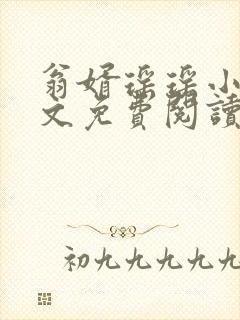 翁婿瑶瑶小
文免费阅读
初九九九九九